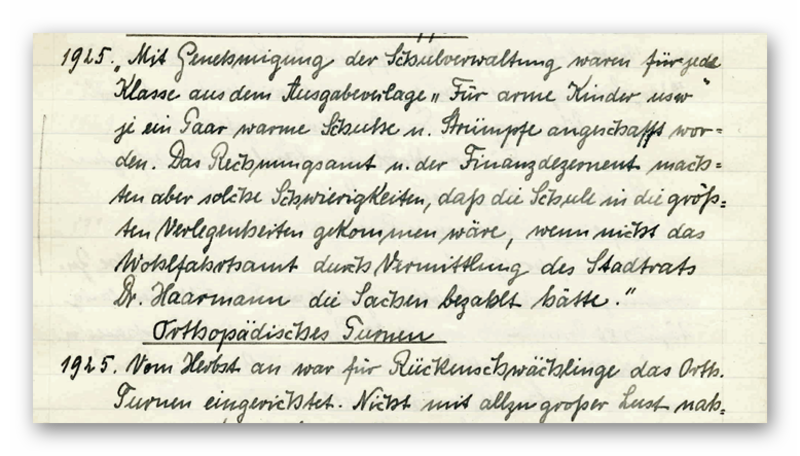 1925. „Mit Genehmigung der Schulverwaltung waren für jede
Klasse aus dem Ausgabeverlage „Für arme Kinder usw“
je ein Paar warme Schuhe u. Strümpfe angeschafft wor=
den. Das Rechnungsamt u. der Finanzdezernent mach=
ten aber solche Schwierigkeiten, daß die Schule in die größ=
ten Verlegenheiten gekommen wäre, wenn nicht das
Wohlfahrtsamt durch Vermittlung des Stadtrats
Dr. Haarmann die Sachen bezahlt hätte.“
Orthopädisches Turnen
1925. Vom Herbst an war für Rückenschwächlinge das Orth.
Turnen eingerichtet. Nicht mit allzu großer Lust nah=